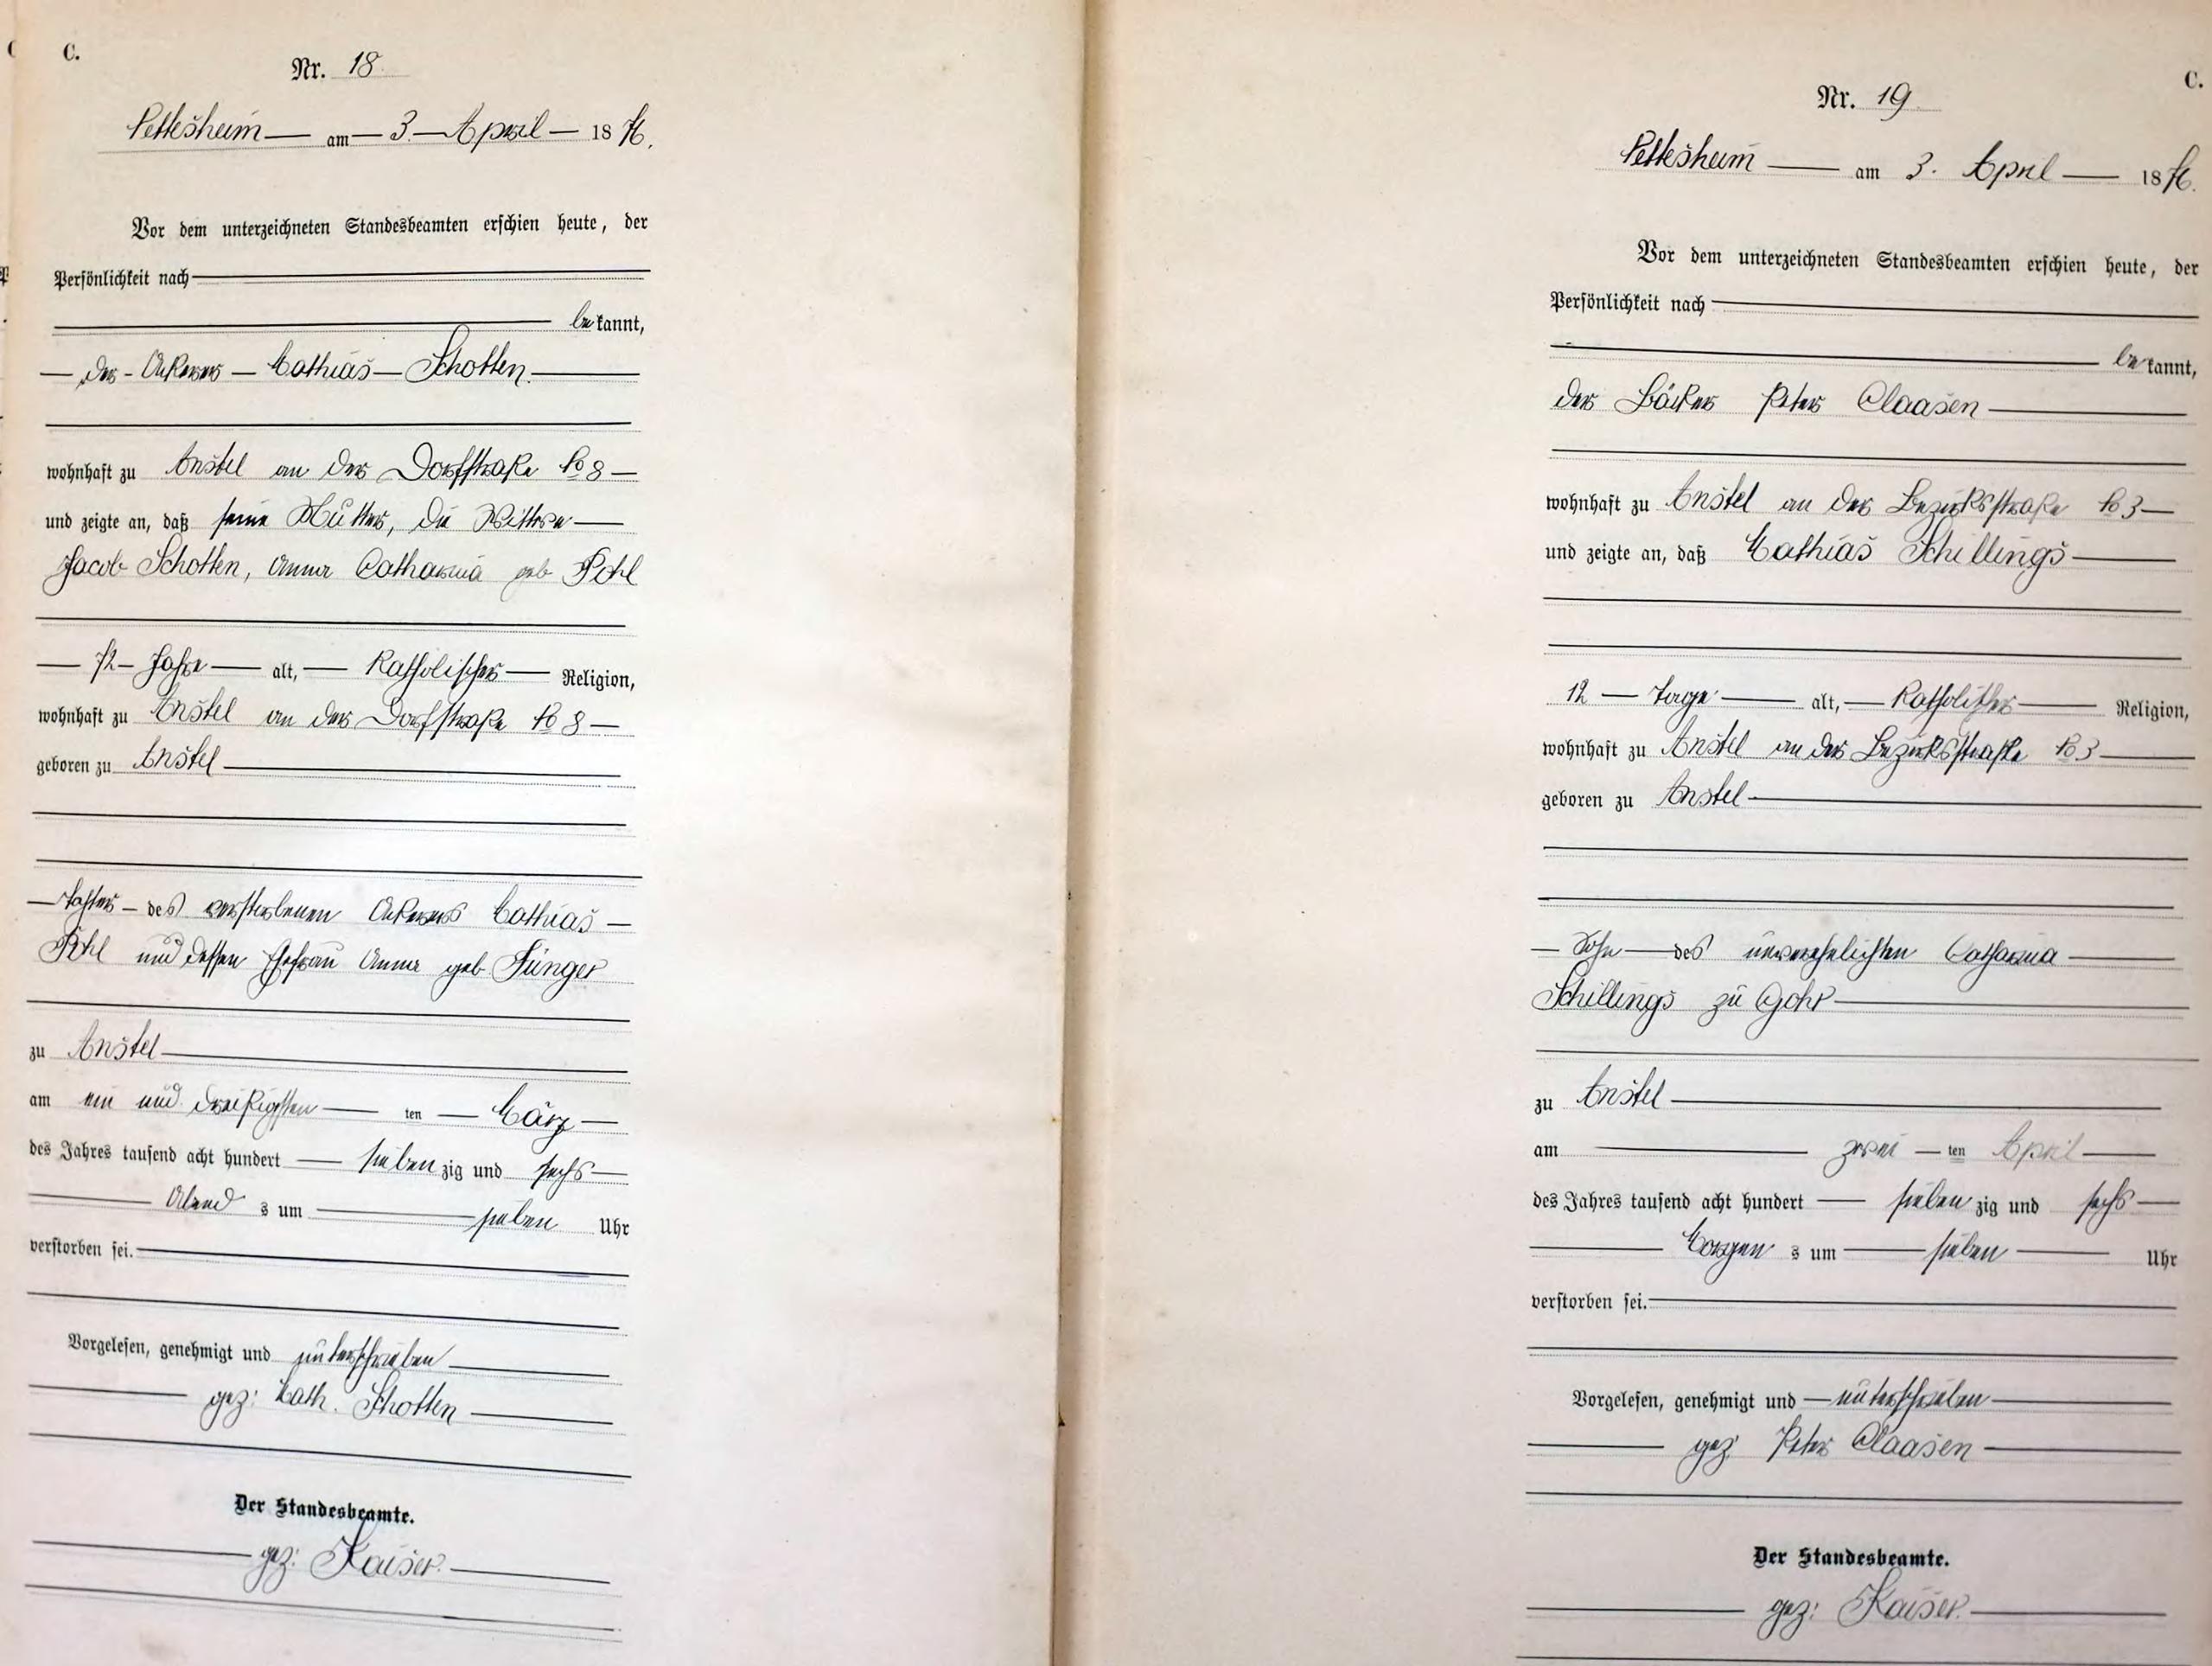 C.
Nr. 18
Nettesheim am 3. April 1876.
Vor dem unterzeichneten Standesbeamten erschien heute, der
Persönlichkeit nach
bekannt,
der Ackerer Mathias Schotten
wohnhaft zu Anstel an der Dorfstraße No 8
und zeigte an, daß seine Mutter, die Wittwe
Jacob Schotten, Anna Catharina geb Pohl
72 Jahre alt, Katholischer Religion,
wohnhaft zu Anstel an der Dorfstraße No 8
geboren zu Anstel
Tochter des verstorbenen Ackerers Mathias
Pohl und dessen Ehefrau Anna geb Jünger
zu Anstel
am ein und dreißigsten ten März
des Jahres tausend acht hundert siebenzig und sechs
Abends um sieben Uhr
verstorben sei.
Vorgelesen, genehmigt und unterschrieben
gez: Math. Schotten
Der Standesbeamte.
gez: Kaiser.
C.
Nr. 19
Nettesheim am 3. April 1876.
Vor dem unterzeichneten Standesbeamten erschien heute, der
Persönlichkeit nach
bekannt,
der Bäcker Peter Claasen
wohnhaft zu Anstel an der Bezirksstraße No 3
und zeigte an, daß Mathias Schillings
12 Tage alt, Katholischer Religion,
wohnhaft zu Anstel an der Bezirksstraße No 3
geboren zu Anstel
Sohn des unverehelichten Catharina
Schillings zu Gohr
zu Anstel
am zwei ten April
des Jahres tausend acht hundert siebenzig und sechs
Morgens um sieben Uhr
verstorben sei.
Vorgelesen, genehmigt und unterschrieben
gez: Peter Claasen
Der Standesbeamte.
gez: Kaiser.